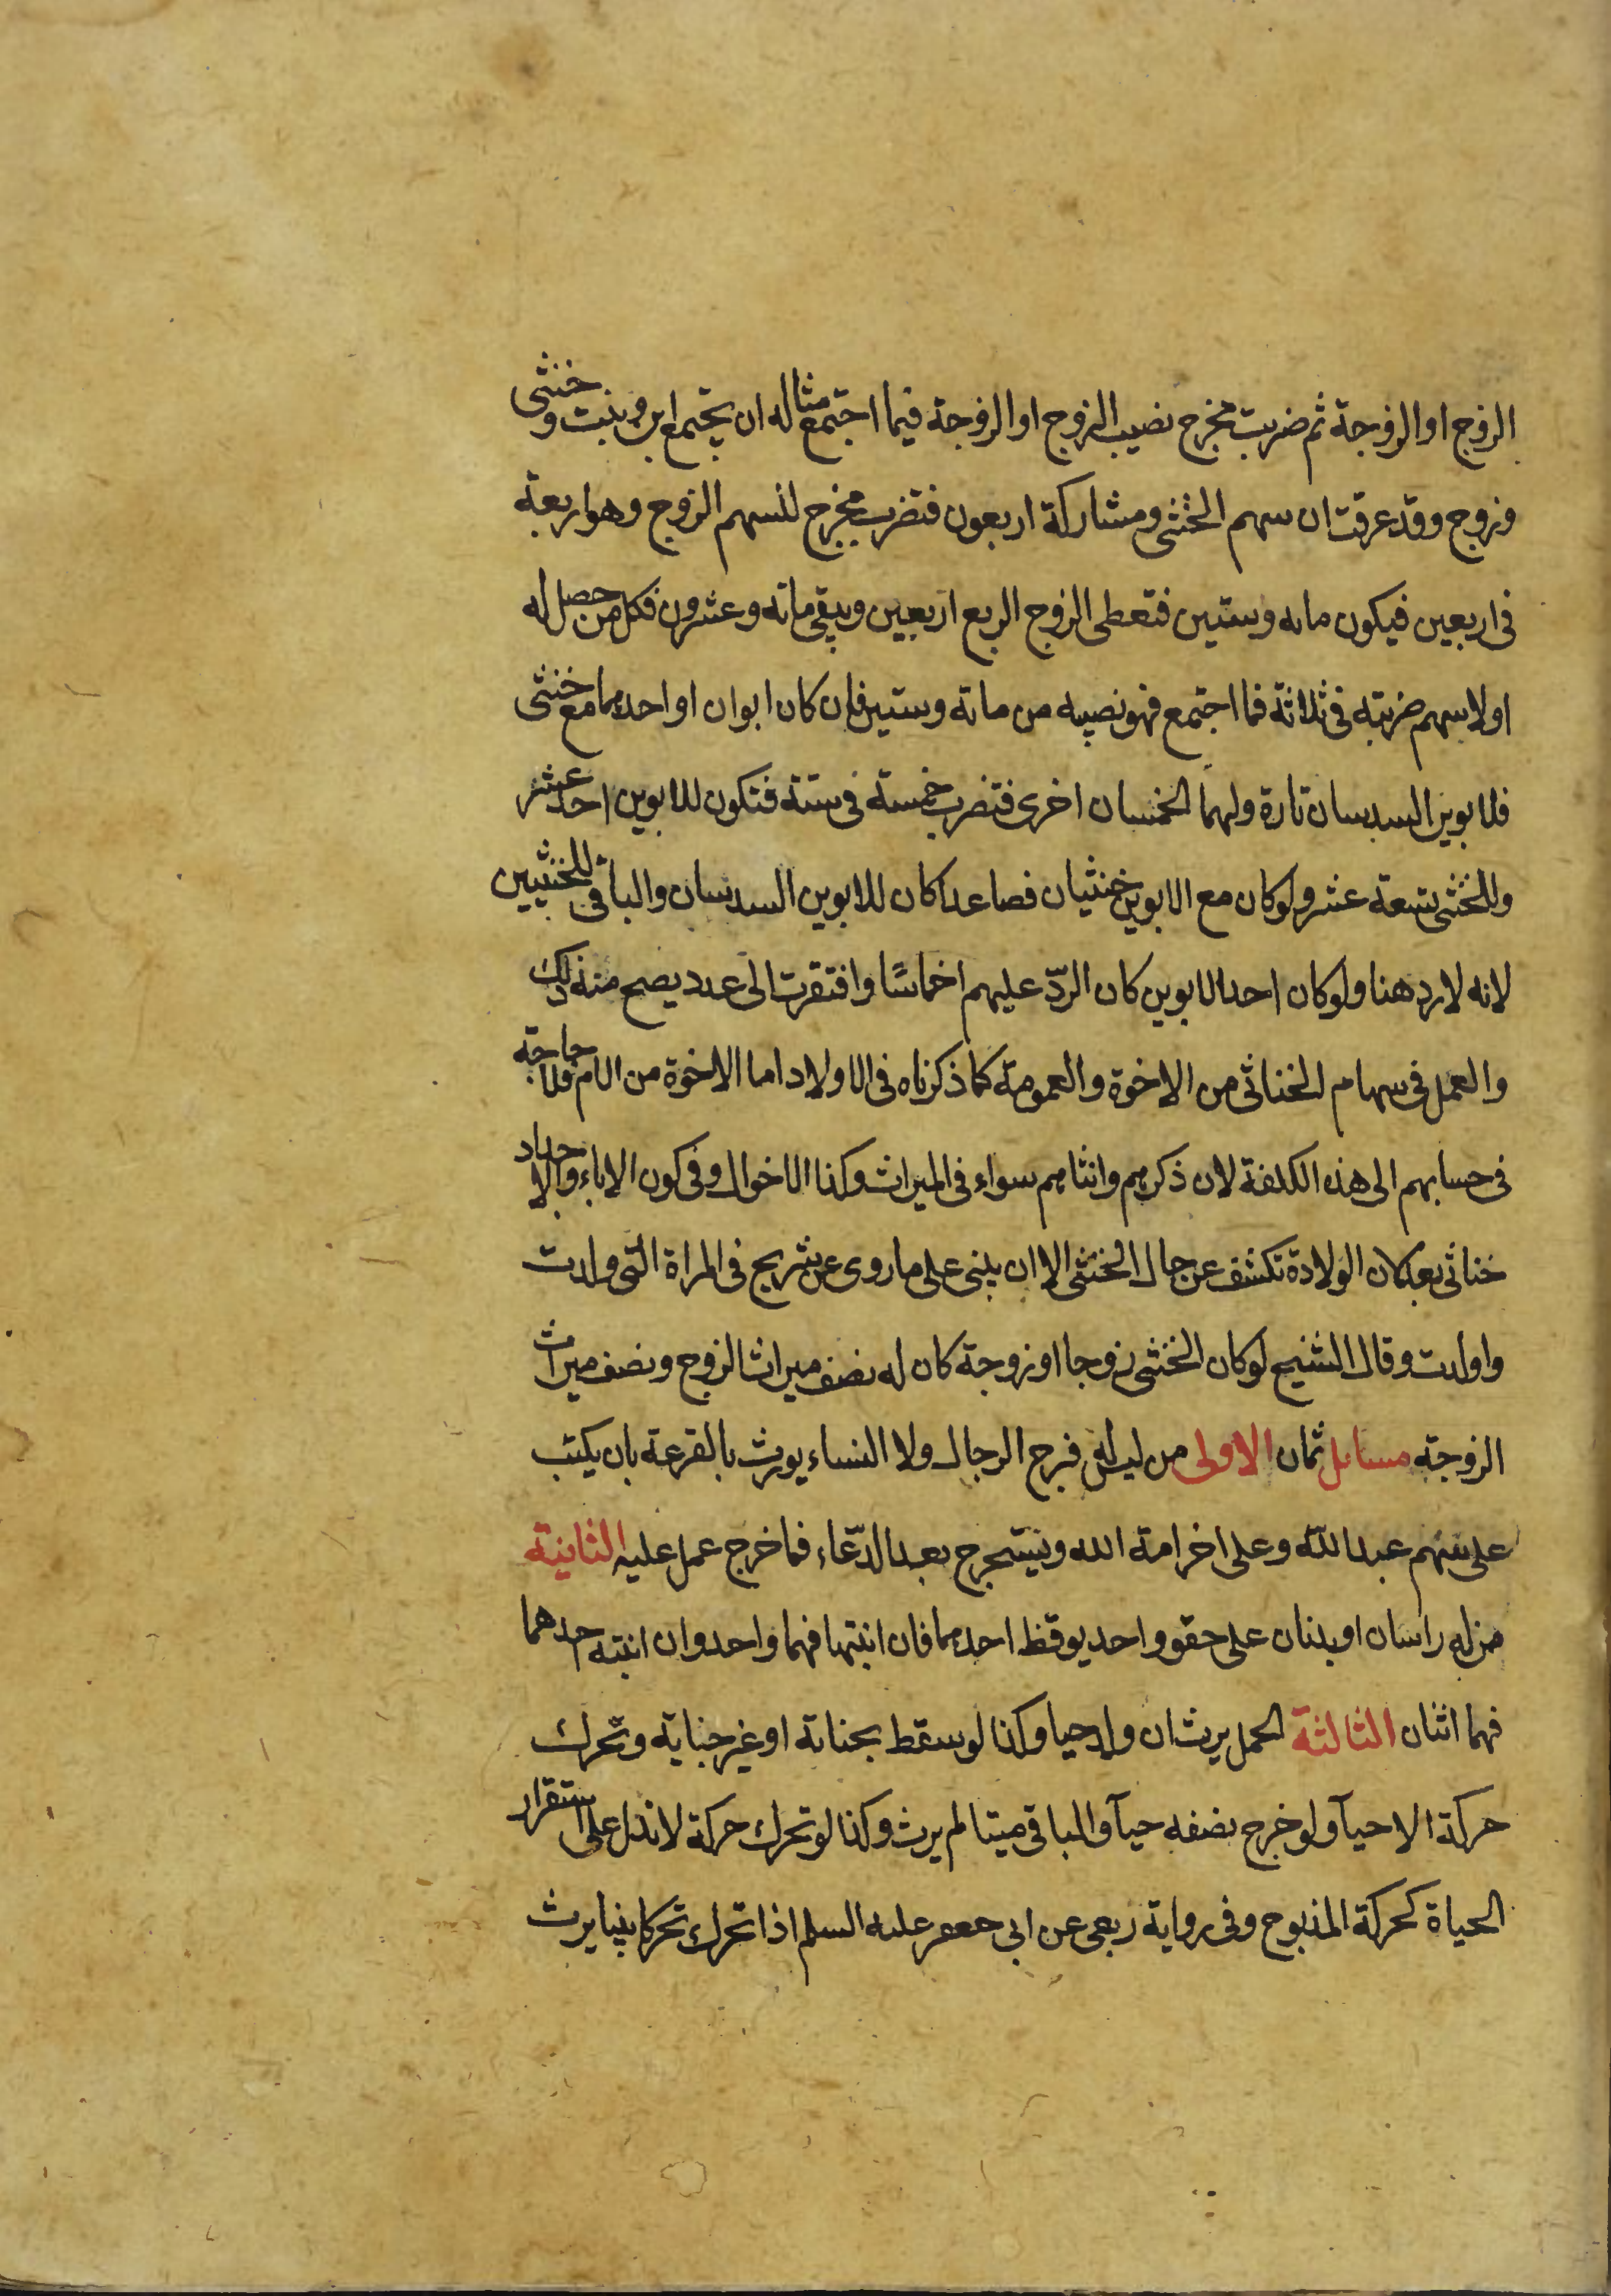 الزوج او الزوجة ثم ضربت مخرج نصيب الزوج او الزوجة فيما اجتمع مثاله ان يجتمع ابن وبنت وخنثى
وزوج وقد عرفت ان سهم الخنثى ومشاركة اربعون فتضرب مخرج لسهم الزوج وهو اربعة
فى اربعين فيكون مائه وستين فتعطى الزوج الربع اربعين ويبقى مائه وعشرون فكل من حصل له
اولا سهم ضربته فى ثلاثة فما اجتمع فهو نصيبه من مائة وستين فان كان ابوان او احدهما مع خنثى
فلابوين السدسان تارة ولهما الخمسان اخرى فتضرب خمسة فى ستة فتكون للابوين احد عشر
وللخنثى تسعة عشر ولو كان مع الابوين خنثيان فصاعدا كان للابوين السدسان والباقى للخنثيين
لانه لا رد هنا ولو كان احد الابوين كان الردّ عليهم اخماسًا وافتقرت الى عدد يصح منه ذلك
والعمل فى سهام الخناثى من الاخوة والعمومة كما ذكرناه فى الاولاد اما الاخوة من الام فلا حاجة
فى حسابهم الى هذه الكلفة لان ذكرهم وانثاهم سواء فى الميراث وكذا الاخوال وفى كون الاباء والاجداد
خناثى بعد لان الولادة تكشف عن حال الخنثى الا ان يبنى على ما روى عن شريح فى المراة التى ولدت
واولدت وقال الشيخ لو كان الخنثى زوجا او زوجة كان له نصف ميراث الزوج ونصف ميراث
الزوجة مسائل ثمان الاولى من ليس له فرج الرجال ولا النساء يورث بالقرعة بان يكتب
على سهم عبد الله وعلى اخر امة الله ويستخرج بعد الدّعاء فما خرج عمل عليه الثانية
من له راسان او بدنان على حقو واحد يوقظ احدهما فان انتبها فهما واحد وان انتبه احدهما
فهما اثنان الثالثة الحمل يرث ان ولد حيا وكذا لو سقط بجناية او غير جناية وتحرك
حركة الاحيآء ولو خرج نصفه حيآ والباقى ميتا لم يرث وكذا لو تحرك حركة لا تدل على استقرار
الحياة كحركة المذبوح وفى رواية ربعى عن ابى جعفر عليه السلم اذا تحرك تحركا بينا يرث